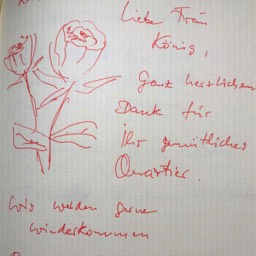 Liebe Frau
König,
ganz herzlichen
Dank für
Ihr gemütliches
Quartier.
Wir werden gerne
wiederkommen